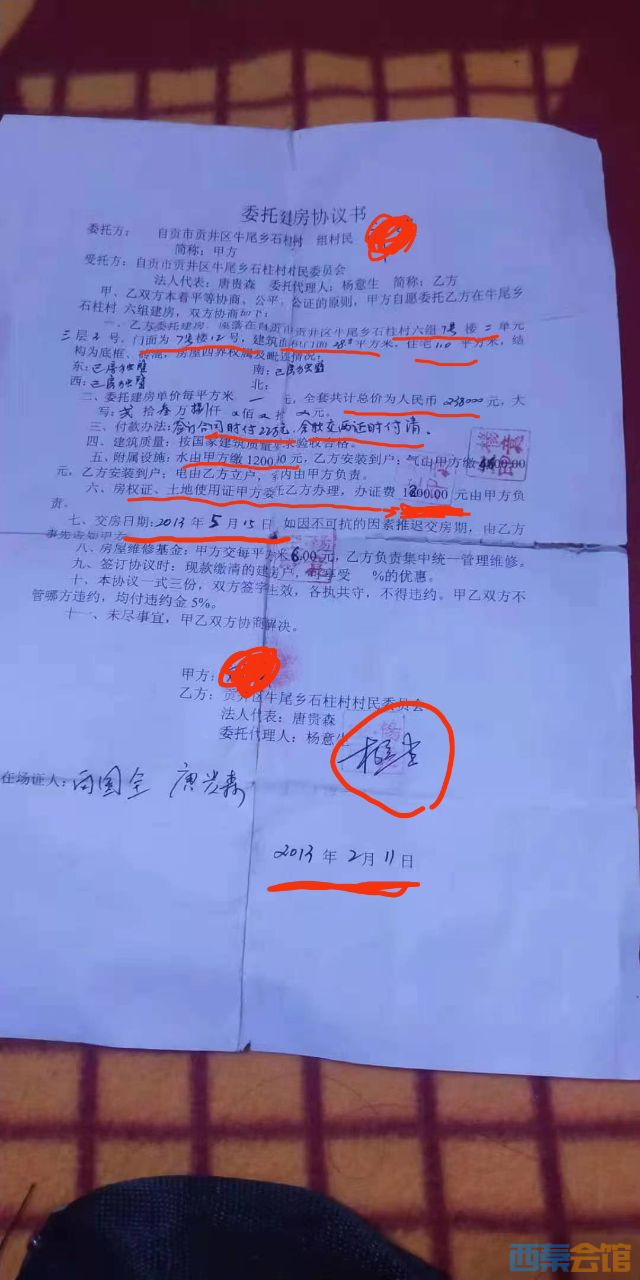 委托建房协议书
委托方： 自贡市贡井区牛尾乡石柱村 组村民
简称：甲方
受托方：自贡市贡井区牛尾乡石柱村村民委员会
法人代表：唐贵森 委托代理人：杨意生 简称：乙方
甲、乙双方本着平等协商、公平、公证的原则，甲方自愿委托乙方在牛尾乡
石柱村 六组建房，双方协商如下：
一、乙方委托建房，座落在自贡市贡井区牛尾乡石柱村六组7号楼二单元
三层2号。门面为7号楼12号，建筑面积门面 平方米，住宅110平方米，结
构为底框、砖混，房屋四界权属及毗连情况：
东：已房独壁 南：已房独壁
西：已房独壁 北：
二、委托建房单价每平方米 一 元，全套共计总价为人民币238000元，大
写：贰拾叁万捌仟 佰 拾 元。
三、付款办法：签订合同时付22万元，余款交两证时付清。
四、建筑质量：按国家建筑质量要求验收合格。
五、附属设施：水由甲方缴1200.00元，乙方安装到户；气由甲方缴 00.00
元，乙方安装到户；电由乙方立户，室内由甲方负责。
六、房权证、土地使用证甲方委托乙方办理，办证费1800.00元由甲方负
责。
七、交房日期：2013年5月15日，如因不可抗的因素推迟交房期，由乙方
事先告知甲方
八、房屋维修基金：甲方交每平方米6.00元，乙方负责集中统一管理维修。
九、签订协议时：现款缴清的建房户，可享受 %的优惠。
十、本协议一式三份，双方签字生效，各执共守，不得违约。甲乙双方不
管哪方违约，均付违约金5%。
十一、未尽事宜，甲乙双方协商解决。
甲方：
乙方：贡井区牛尾乡石柱村村民委员会
法人代表：唐贵森
委托代理人：杨意生
在场证人： 唐贵森
2013年2月11日
西秦会馆